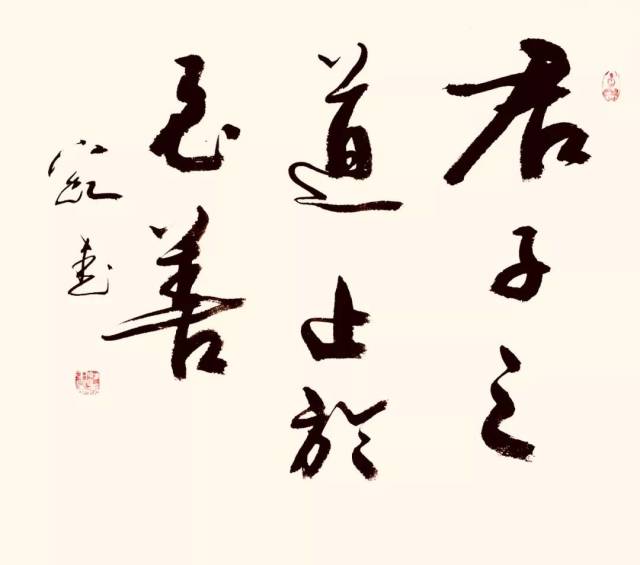 君子之
道止於
至善